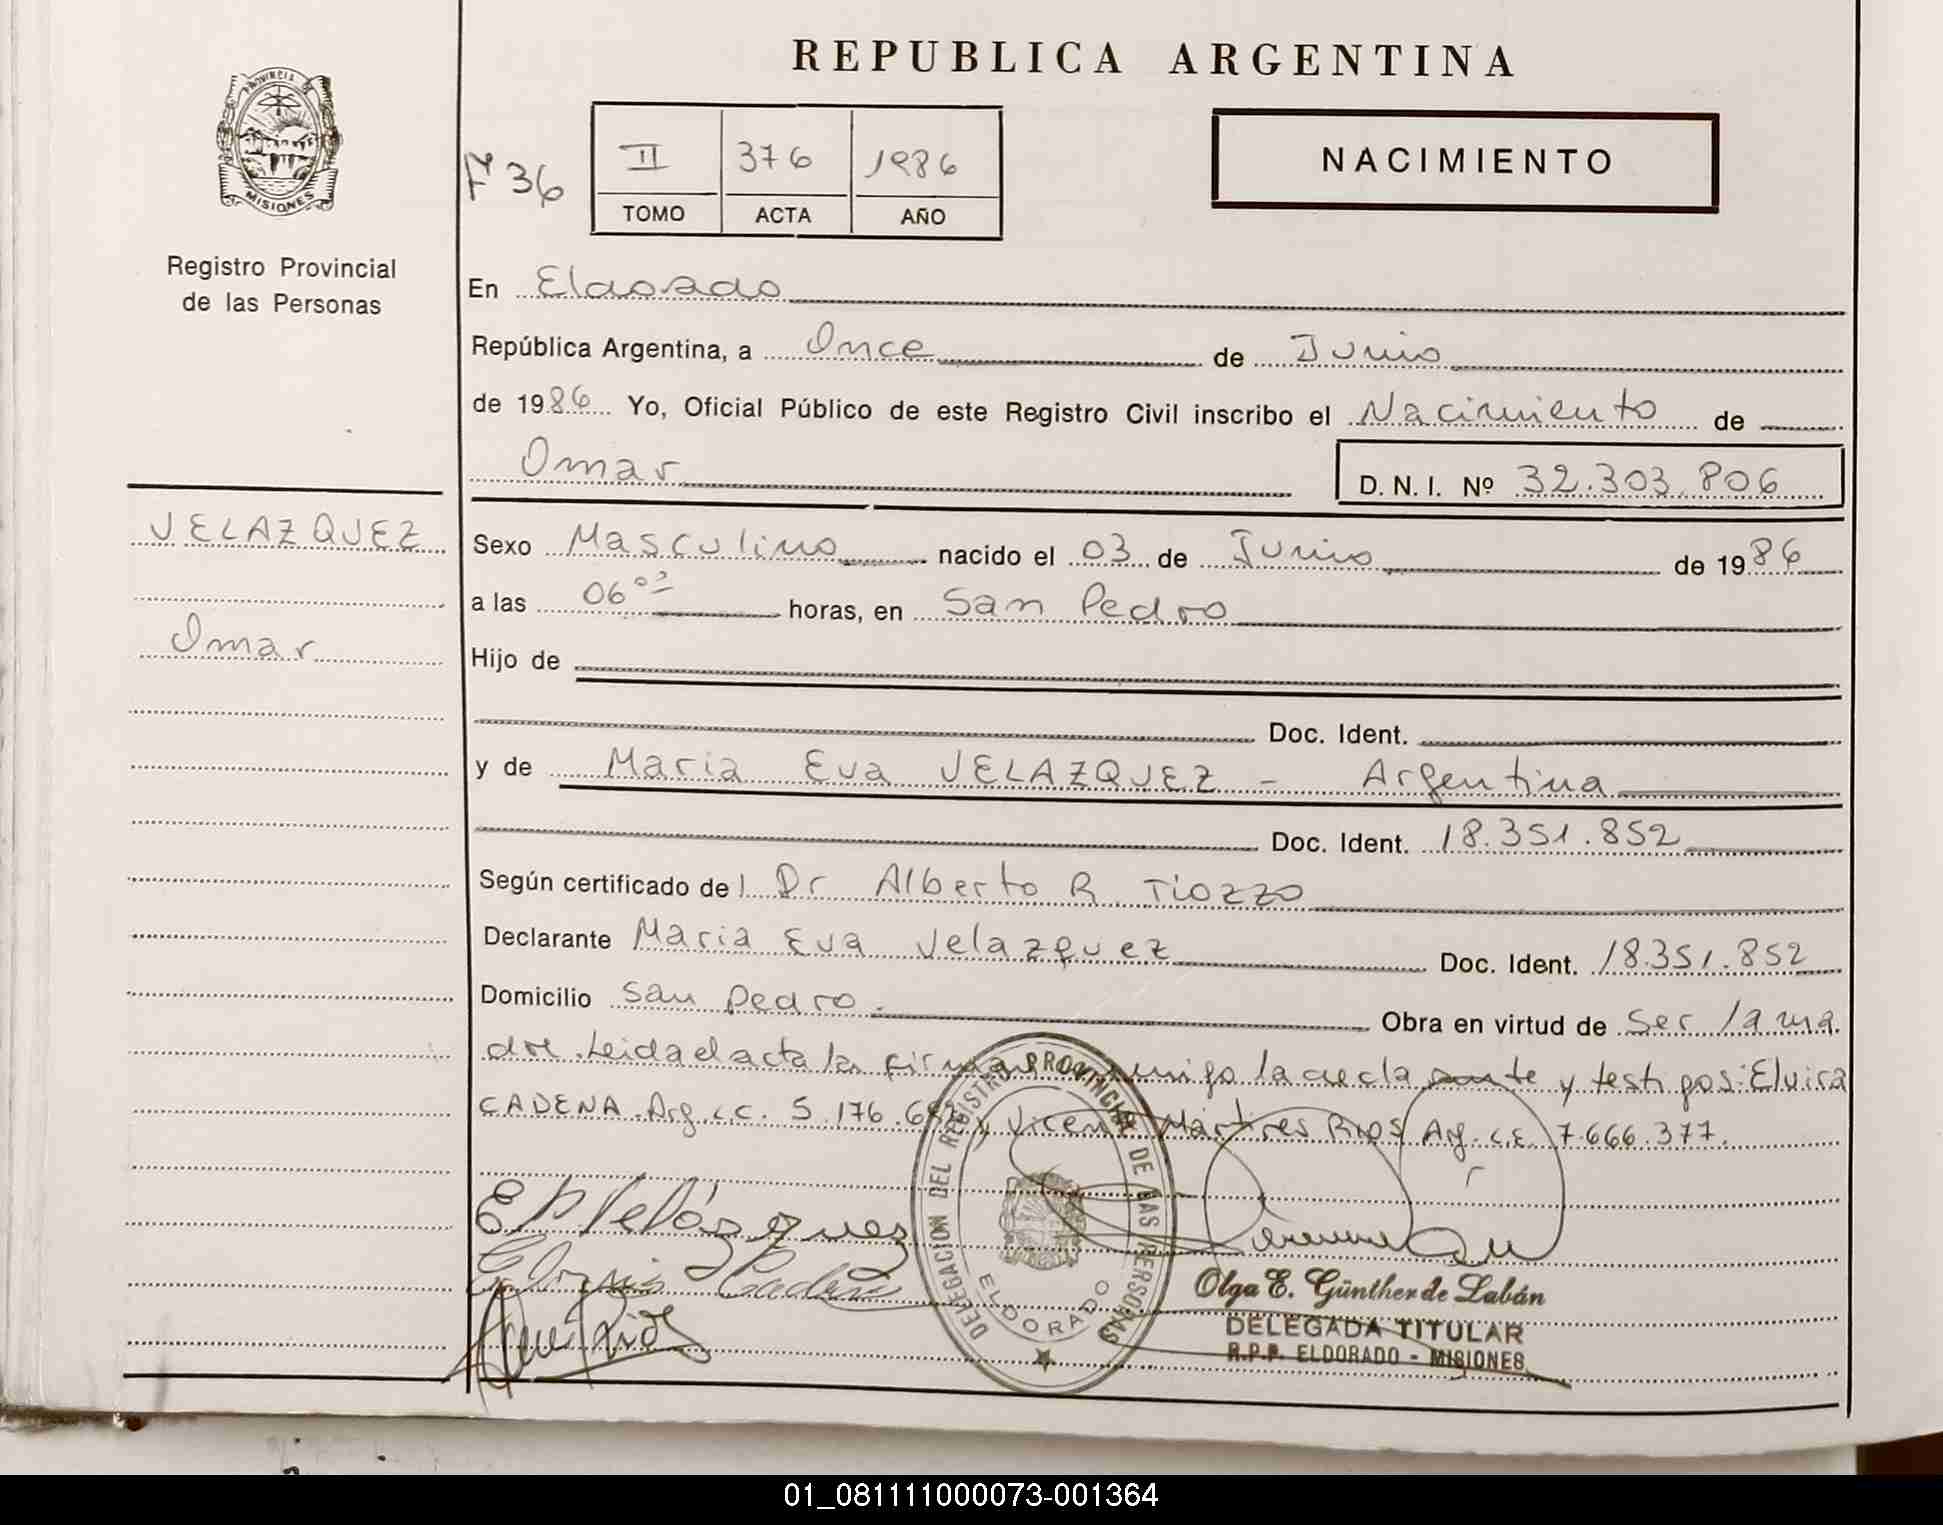 REPUBLICA ARGENTINA
PROVINCIA
MISIONES
Fº 36
II 376 1986
TOMO ACTA AÑO
NACIMIENTO
Registro Provincial
de las Personas
En Eldorado
República Argentina, a Once de Junio
de 1986 Yo, Oficial Público de este Registro Civil inscribo el Nacimiento de
Omar D. N. I. Nº 32.303.806
VELAZQUEZ
Omar
Sexo Masculino nacido el 03 de Junio de 1986
a las 06 horas, en San Pedro
Hijo de
Doc. Ident.
y de Maria Eva VELAZQUEZ - Argentina
Doc. Ident. 18.351.852
Según certificado de l Dr Alberto R. Tiozzo
Declarante Maria Eva Velazquez Doc. Ident. 18.351.852
Domicilio San Pedro. Obra en virtud de ser la ma
dre. Leida el acta la firma conmigo la declarante y testigos: Elvira
CADENA. Arg. c.c. 5.176. Vicente Martires Rios Arg. c.c. 7.666.377.
DELEGACION DEL REGISTRO PROVINCIAL DE LAS PERSONAS
ELDORADO
E Velázquez
Olga E. Günther de Labán
DELEGADA TITULAR
R.P.P. ELDORADO - MISIONES
01_081111000073-001364